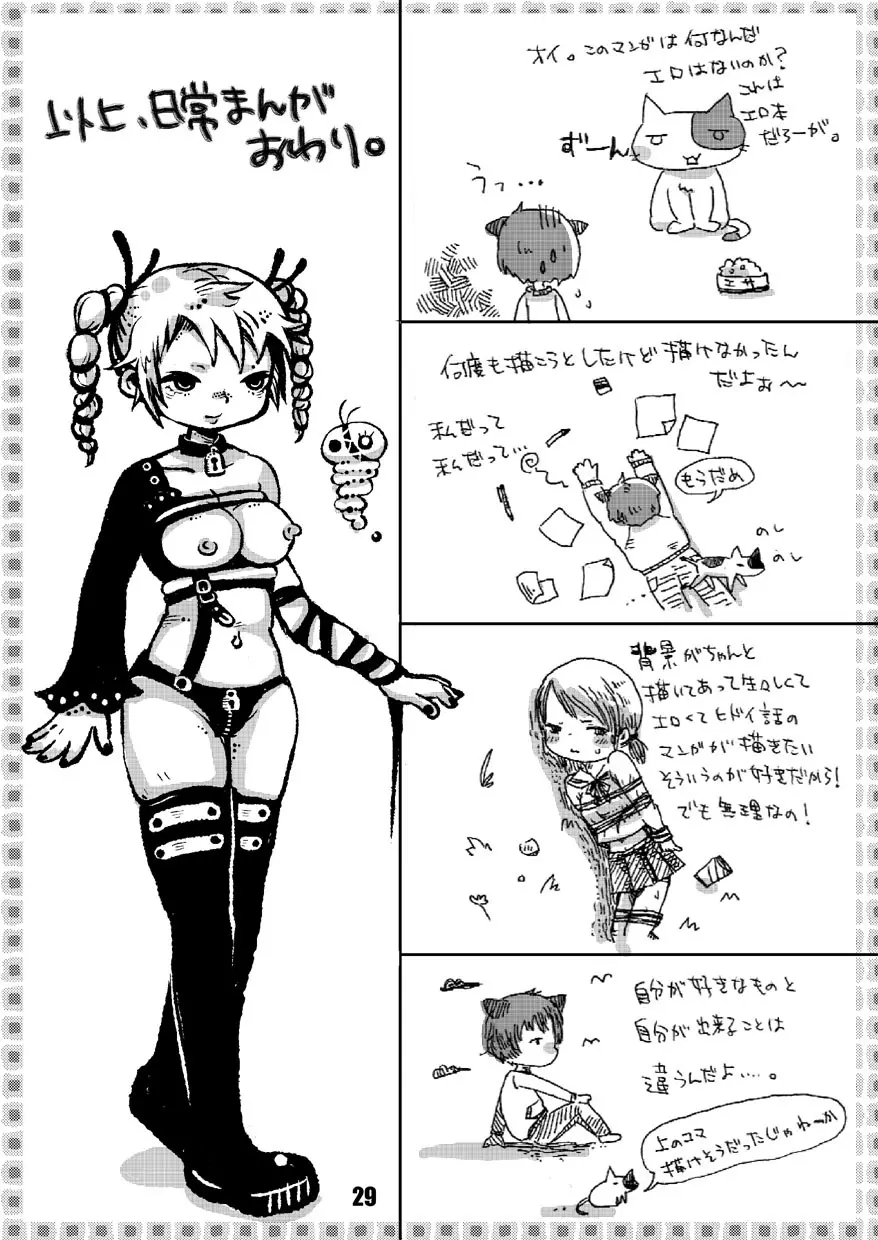 以上、日常まんが
おわり。
オイ。このマンガは何なんだ
エロはないのか?
これは
エロ本
だろーが。
ずーん
うっ…
エサ
何度も描こうとしたけど描けなかったん
だよぉ〜
私だって
私だって…
もうだめ
のし
のし
背景がちゃんと
描いてあって生々しくて
エロくてヒドイ話の
マンガが描きたい
そういうのが好きだから!
でも無理なの!
自分が好きなものと
自分が出来ることは
違うんだよ…。
上のコマ
描けそうだったじゃねーか
29